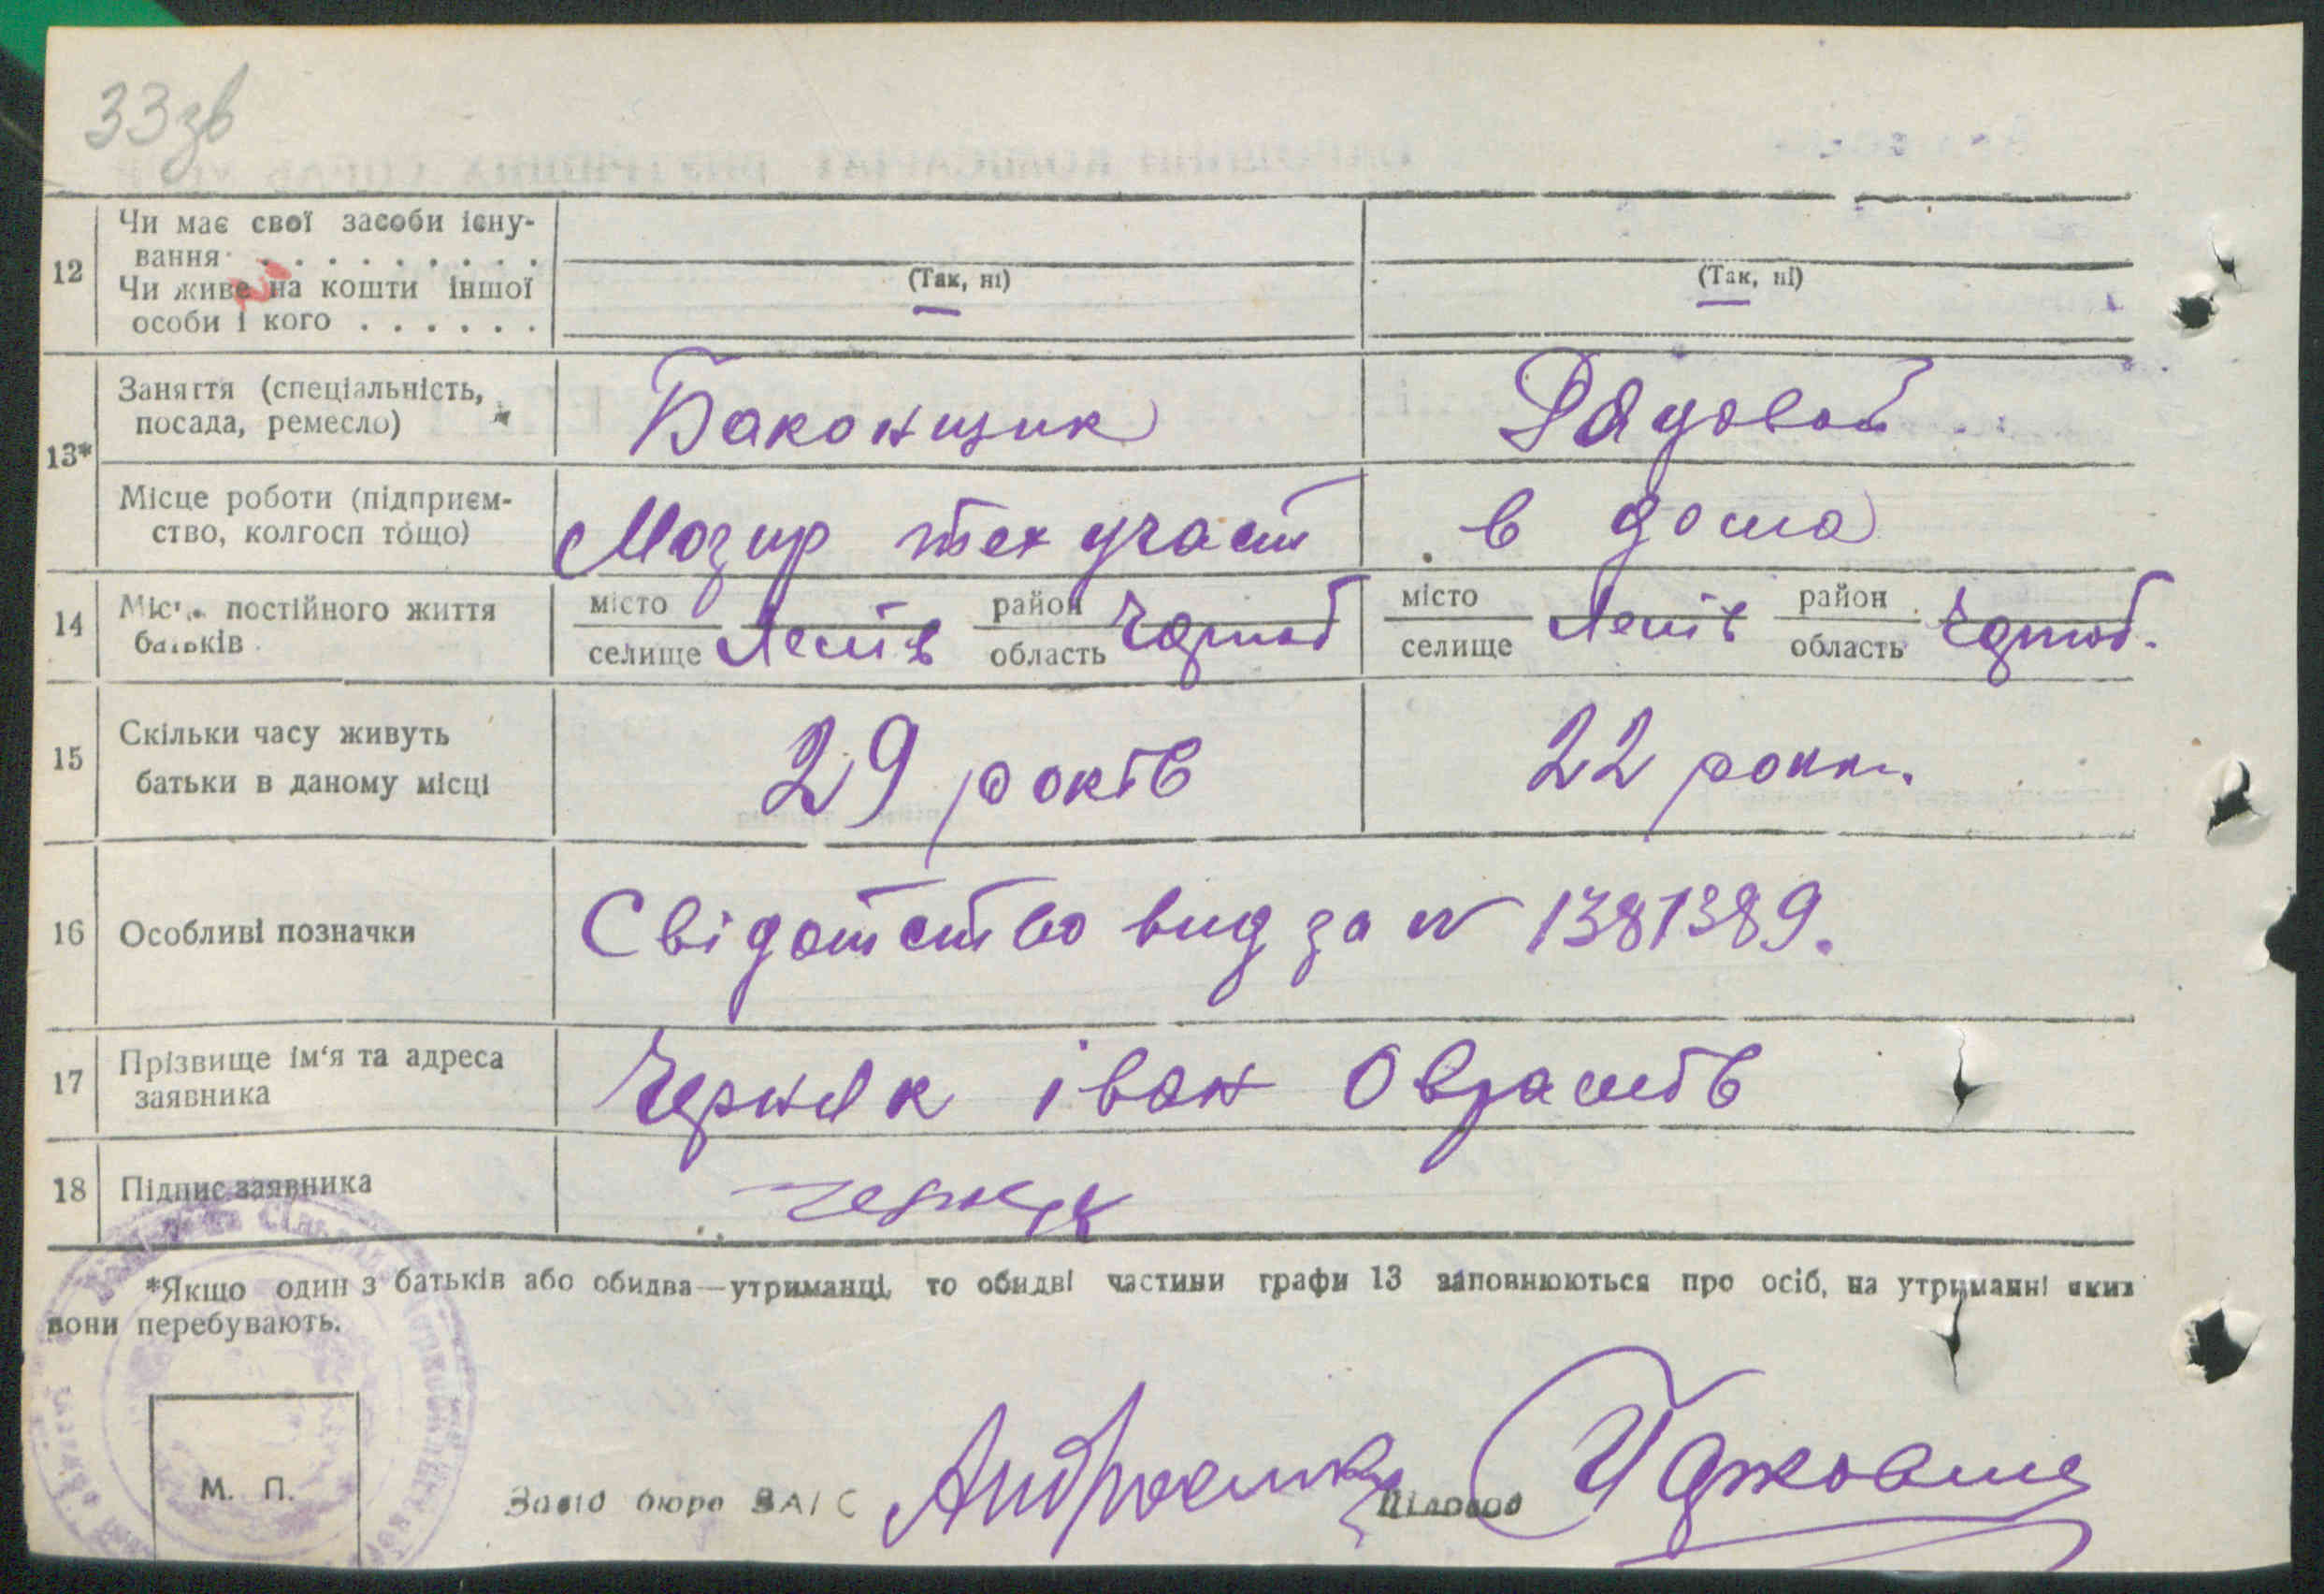 33зв
12 Чи має свої засоби існу-
вання . . . . . . . . . .
(Так, ні) (Так, ні)
Чи живе на кошти іншої
особи і кого . . . . . .
13* Заняття (спеціальність,
посада, ремесло) Баконщик Рядовой
Місце роботи (підприєм-
ство, колгосп тощо) Мозир тех участ в дома
14 постійного життя
батьків
місто район місто район
селище область селище область
15 Скільки часу живуть
батьки в даному місці 29 років 22 роки.
16 Особливі позначки Свідотство вид за N 1381389.
17 Прізвище ім'я та адреса
заявника Черняк іван
18 Підпис заявника Черняк
*Якщо один з батьків або обидва—утриманці, то обидві частини графи 13 заповнюються про осіб, на утриманні яких
вони перебувають.
М. П.
бюро ЗАГС Діловод